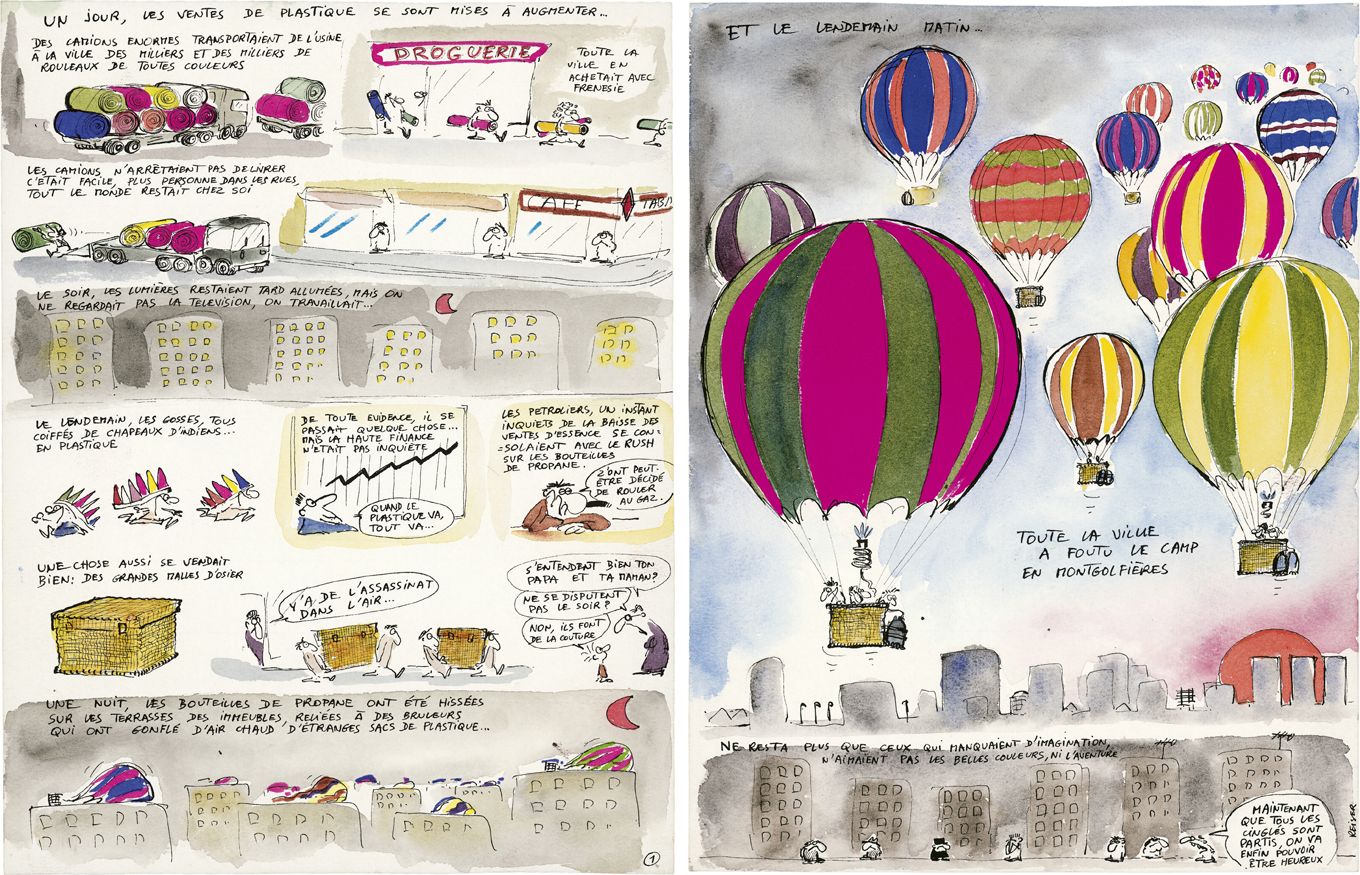 UN JOUR, LES VENTES DE PLASTIQUE SE SONT MISES À AUGMENTER...
DES CAMIONS ENORMES TRANSPORTAIENT DE L'USINE
À LA VILLE DES MILLIERS ET DES MILLIERS DE
ROULEAUX DE TOUTES COULEURS
DROGUERIE
TOUTE LA
VILLE EN
ACHETAIT AVEC
FRENESIE
LES CAMIONS N'ARRÊTAIENT PAS DE LIVRER
C'ETAIT FACILE, PLUS PERSONNE DANS LES RUES
TOUT LE MONDE RESTAIT CHEZ SOI
CAFE
TABA
LE SOIR, LES LUMIÈRES RESTAIENT TARD ALLUMÉES, MAIS ON
NE REGARDAIT PAS LA TELEVISION, ON TRAVAILLAIT...
LE LENDEMAIN, LES GOSSES, TOUS
COIFFÉS DE CHAPEAUX D'INDIENS...
EN PLASTIQUE
DE TOUTE EVIDENCE, IL SE
PASSAIT QUELQUE CHOSE...
MAIS LA HAUTE FINANCE
N'ETAIT PAS INQUIÈTE
QUAND LE
PLASTIQUE VA,
TOUT VA...
LES PETROLIERS, UN INSTANT
INQUIETS DE LA BAISSE DES
VENTES D'ESSENCE SE CON=
=SOLAIENT AVEC LE RUSH
SUR LES BOUTEILLES
DE PROPANE.
Z'ONT PEUT-
ÊTRE DÉCIDÉ
DE ROULER
AU GAZ.
UNE CHOSE AUSSI SE VENDAIT
BIEN: DES GRANDES MALLES D'OSIER
Y'A DE L'ASSASSINAT
DANS L'AIR...
S'ENTENDENT BIEN TON
PAPA ET TA MAMAN?
NE SE DISPUTENT
PAS LE SOIR?
NON, ILS FONT
DE LA COUTURE
UNE NUIT, LES BOUTEILLES DE PROPANE ONT ÉTÉ HISSÉES
SUR LES TERRASSES DES IMMEUBLES, RELIÉES À DES BRULEURS
QUI ONT GONFLÉ D'AIR CHAUD D'ÉTRANGES SACS DE PLASTIQUE...
1
ET LE LENDEMAIN MATIN...
TOUTE LA VILLE
A FOUTU LE CAMP
EN MONTGOLFIÈRES
NE RESTA PLUS QUE CEUX QUI MANQUAIENT D'IMAGINATION,
N'AIMAIENT PAS LES BELLES COULEURS, NI L'AVENTURE
MAINTENANT
QUE TOUS LES
CINGLÉS SONT
PARTIS, ON VA
ENFIN POUVOIR
ÊTRE HEUREUX
REISER